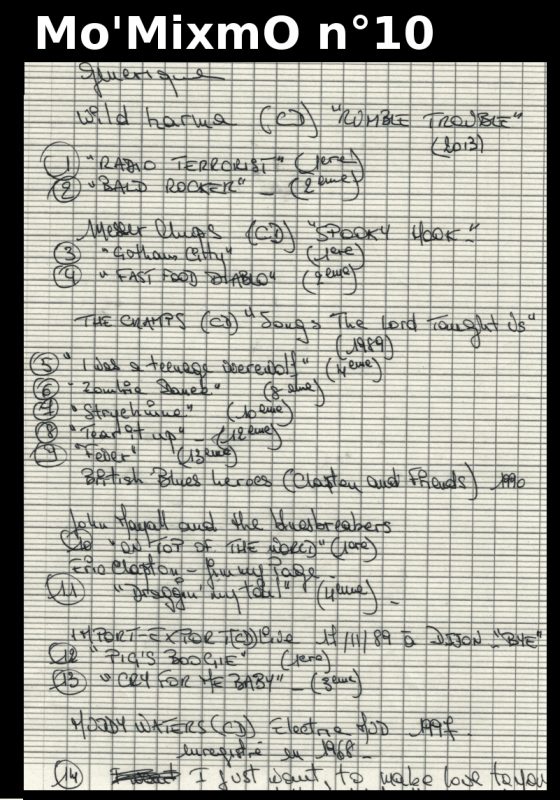 Mo'MixmO n°10
Générique
Wild karma (CD) "RUMBLE TROUBLE"
(2013)
1 "RADIO TERRORIST" (1ere)
2 "BALD ROCKER" _ (2eme)
Messer Chups (CD) "SPOOKY HOOK"
3 "Gotham Citty" (1ere)
4 "FAST FOOD DIABLO" (2eme)
THE CRAMPS (CD) "Songs The Lord Taught Us"
(1989)
5 "I Was a teenage werewolf" (4eme)
6 "Zombie Dance" (8eme)
7 "Strychnine" (10eme)
8 "Tear it up" _ (12eme)
9 "Fever" (13eme)
British Blues heroes (Clapton and Friends) 1990
John Mayall and the bluesbreakers
10 "ON TOP OF THE WORLD" (1ere)
Eric Clapton - Jimmy Page
11 "Draggin' my tail" (4eme) _
IMPORT-EXPORT (CD) Live 17/11/89 à DIJON "BYE"
12 "PIG'S BOOGIE" (1ere)
13 "CRY FOR ME BABY" _ (3eme)
MUDDY WATERS (CD) Electric MUD 1997.
enregistré en 1968 _
14 I just want to make love to you